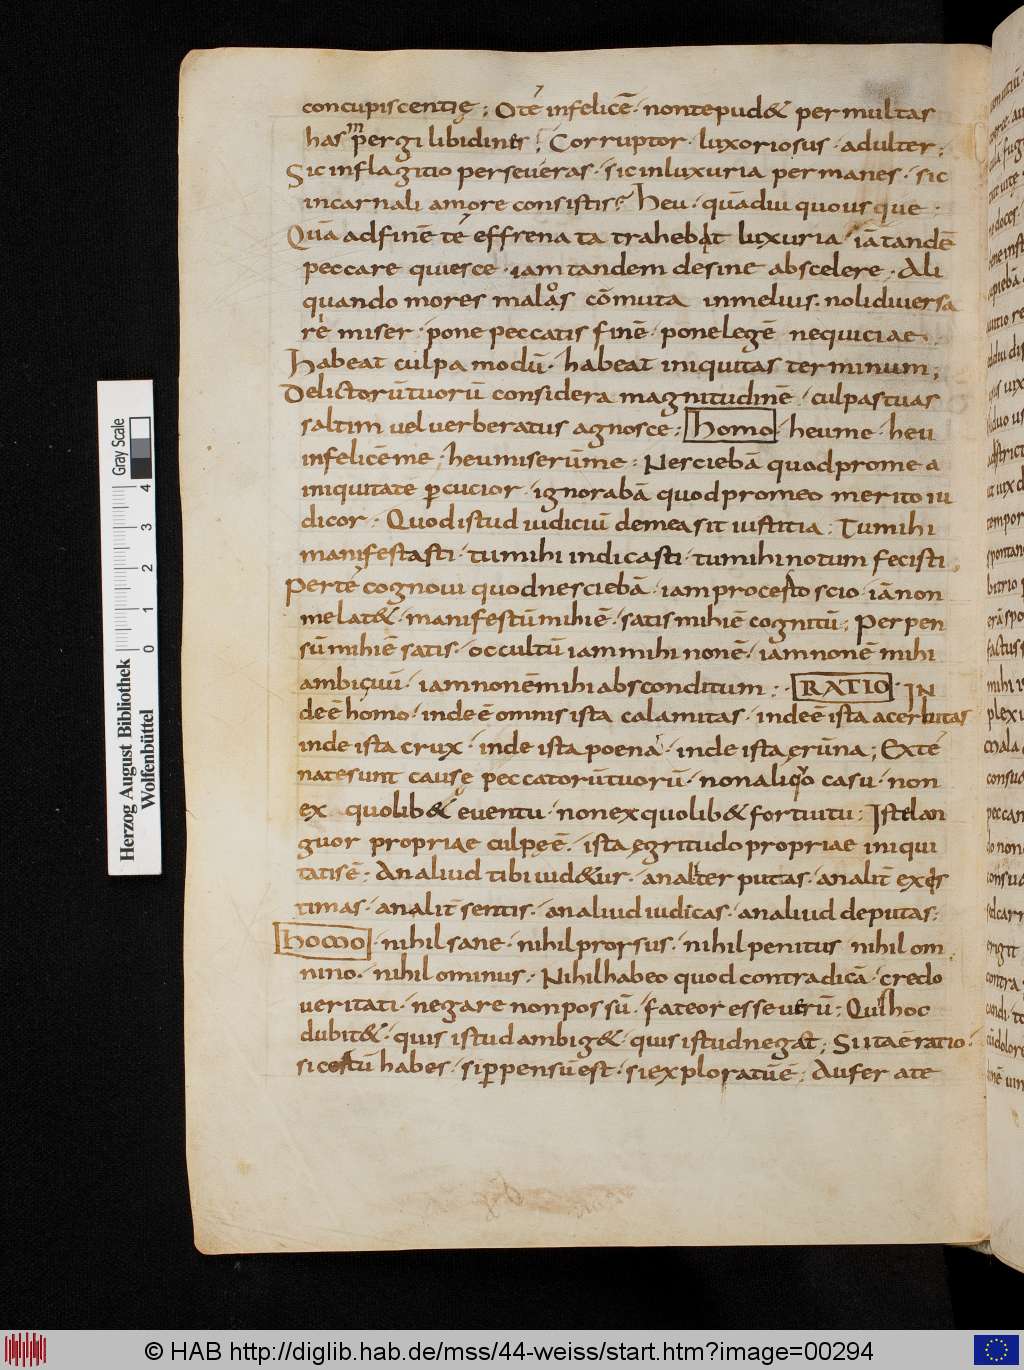 concupiscentię ; O te infelicē · non te pud& per multas
has pergi libidines ; Corruptor · luxoriosus · adulter ;
Sic in flagitio perseveras · sic in luxuria permanes · sic
in carnali amore consistis ? heu · quādiu quousque ·
Quā ad finē te effrenata trahebat luxuria · iā tandē
peccare quiesce · iam tandem desine ab scelere · Ali
quando mores malos cōmuta in melius · noli diversa
re miser · pone peccatis finē · pone legē nequiciae ·
habeat culpa modū · habeat iniquitas terminum ;
Delictorū tuorū considera magnitudinē · culpas tuas
saltim vel verberatus agnosce : homo · heu me · heu
infelicē me · heu miserū me : Nesciebā quod pro mea
iniquitate pcucior · ignorabā quod pro meo merito iu
dicor : Quod istud iudiciū de mea sit iustitia : Tu mihi
manifestasti · tu mihi indicasti · tu mihi notum fecisti ;
Per te cognovi quod nesciebā · iam pro certo scio · iā non
me lat& · manifestū mihi ē · satis mihi ē cognitū : Perpen
sū mihi ē satis · occultū iam mihi non ē · iam non ē mihi
ambiguū · iam non ē mihi absconditum : · RATIO · IN
de ē homo · inde ē omnis ista calamitas · inde ē ista acerbitas
inde ista crux · inde ista poena · inde ista ęrūna ; Ex te
nate sunt causę peccatorū tuorū · non aliquo casu · non
ex quolib& eventu · non ex quolib& fortuitu : Iste lan
guor propriae culpę ē · ista ęgritudo propriae iniqui
tatis ē : An aliud tibi vid&ur · an aliter putas · an alit̄ exis
timas · an alit̄ sentis · an aliud iudicas · an aliud deputas :
homo · nihil sane · nihil prorsus · nihil penitus nihil om
nino · nihil ominus : Nihil habeo quod contradicā · credo
veritati · negare non possū · fateor esse verū : Quis hoc
dubit& · quis istud ambig& · quis istud negat ; Si ita ē ratio ·
si certū habes · si ppensū est · si exploratū ē ; Aufer a te
Herzog August Bibliothek
Wolfenbüttel
0 1 2 3 4
Gray Scale
© HAB http://diglib.hab.de/mss/44-weiss/start.htm?image=00294